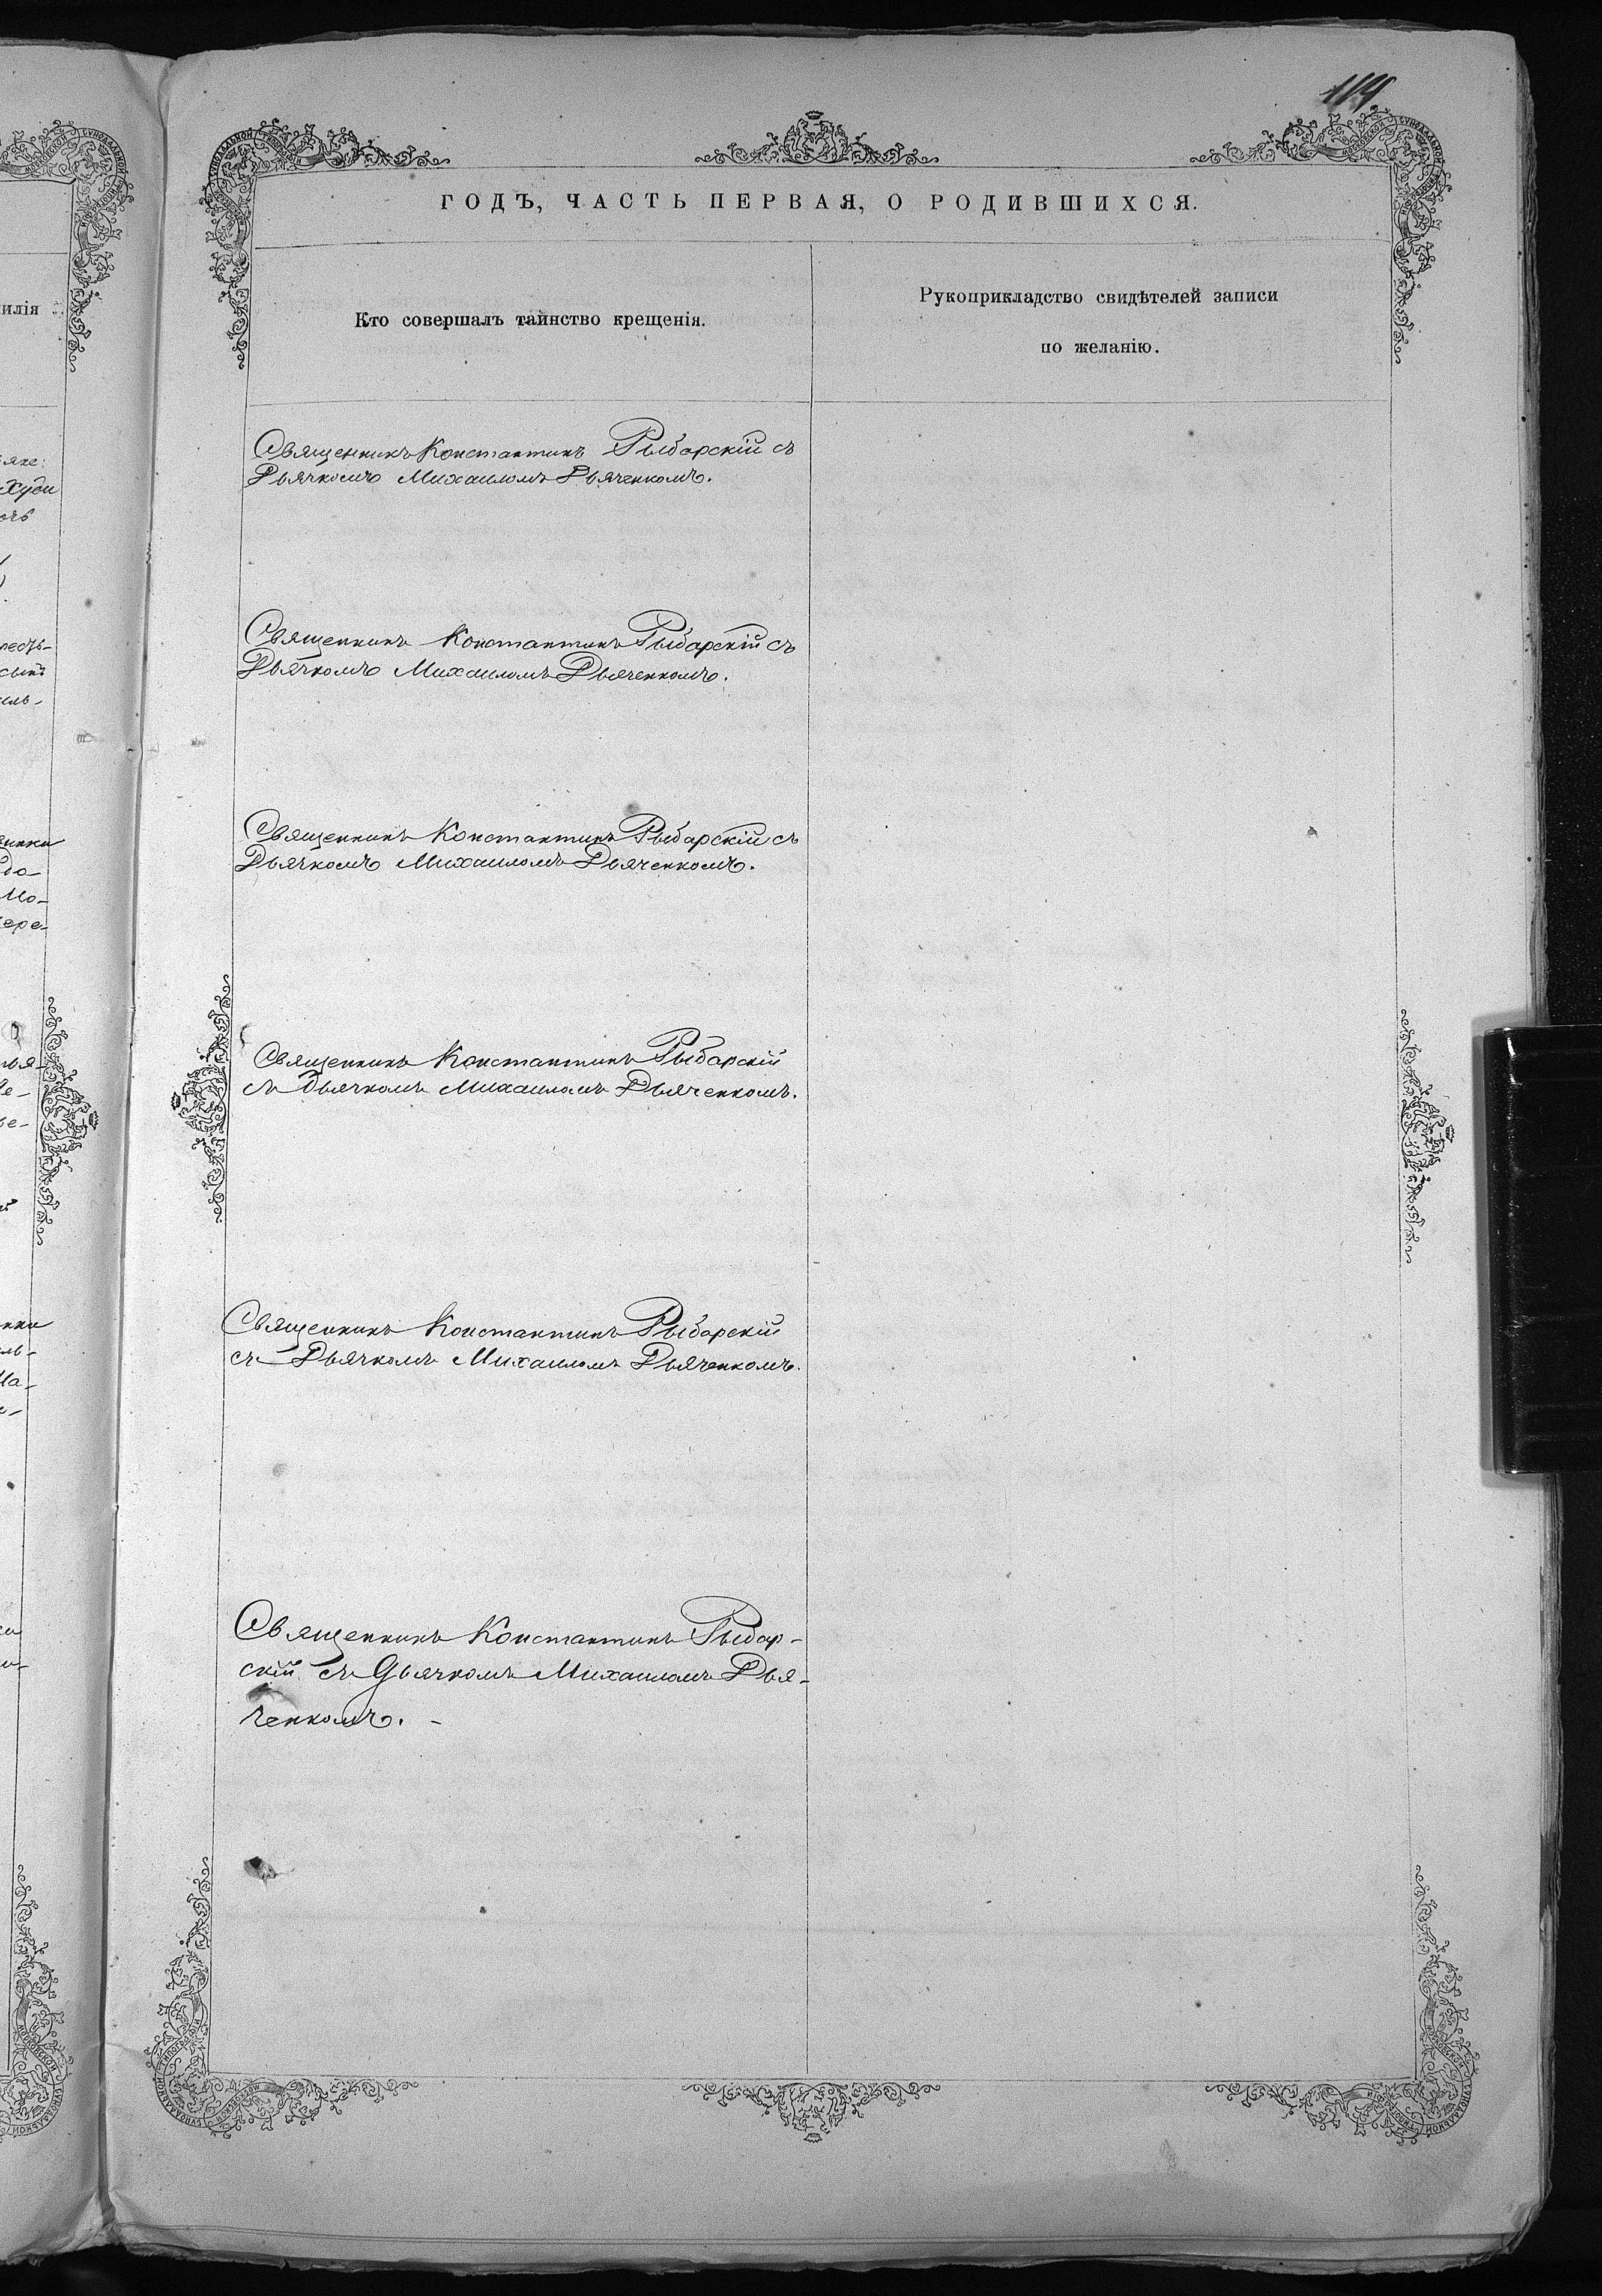 119
ГОДЪ, ЧАСТЬ ПЕРВАЯ, О РОДИВШИХСЯ.
Кто совершалъ таинство крещенія.
Рукоприкладство свидѣтелей записи
по желанію.
Священникъ Константинъ Рыбарскій съ
Дьячкомъ Михаиломъ Дьяченкомъ.
Священникъ Константинъ Рыбарскій съ
Дьячкомъ Михаиломъ Дьяченкомъ.
Священникъ Константинъ Рыбарскій съ
Дьячкомъ Михаиломъ Дьяченкомъ.
Священникъ Константинъ Рыбарскій
съ дьячкомъ Михаиломъ Дьяченкомъ.
Священникъ Константинъ Рыбарскій
съ Дьячкомъ Михаиломъ Дьяченкомъ.
Священникъ Константинъ Рыбар-
скій съ Дьячкомъ Михаиломъ Дья-
ченкомъ. -